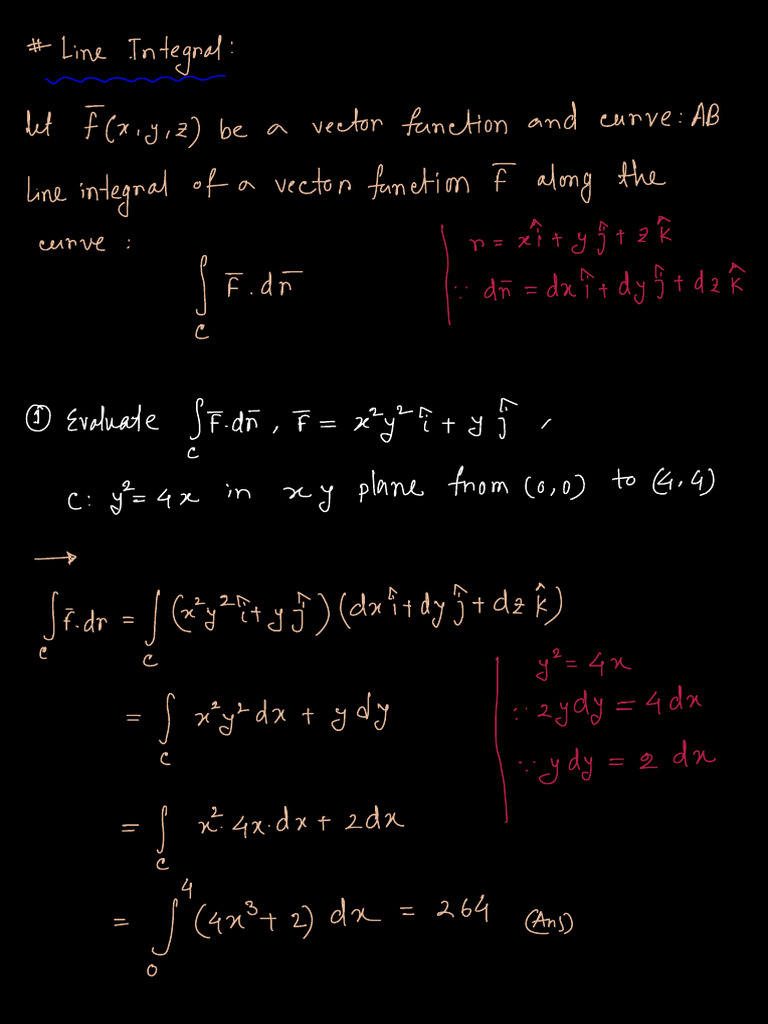 # Line Integral:
Let F̅(x,y,z) be a vector function and curve: AB
Line integral of a vector function F̅ along the
curve :
∫_C F̅.dr̅
r = xî + yĵ + zk̂
∵ dr̅ = dxî + dyĵ + dzk̂
① Evaluate ∫_C F̅.dr̅, F̅ = x²y²î + yĵ,
C: y² = 4x in xy plane from (0,0) to (4,4)
→
∫_C F̅.dr = ∫_C (x²y²î + yĵ)(dxî + dyĵ + dzk̂)
= ∫_C x²y²dx + ydy
y² = 4x
∵ 2ydy = 4dx
∵ ydy = 2 dx
= ∫_C x².4x.dx + 2dx
= ∫₀⁴ (4x³ + 2) dx = 264 (Ans)